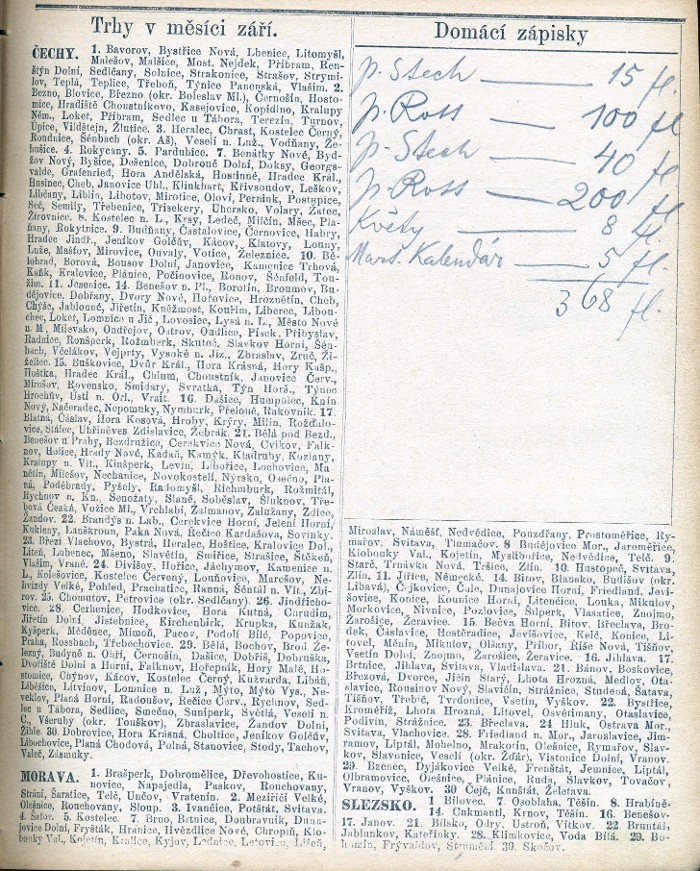 Trhy v měsíci září.
ČECHY. 1. Bavorov, Bystřice Nová, Lhenice, Litomyšl,
Malešov, Malšice, Most, Nejdek, Příbram, Ren-
štýn Dolní, Sedlčany, Solnice, Strakonice, Strašov, Strymi-
lov, Teplá, Teplice, Třeboň, Týnice Panenská, Vlašim. 2.
Bezno, Blovice, Březno (okr. Boleslav Ml.), Černošín, Hosto-
mice, Hradiště Choustníkovo, Kasejovice, Kopidlno, Kralupy
Něm., Loket, Příbram, Sedlec u Tábora, Terezín, Turnov,
Úpice, Vildštejn, Žlutice. 3. Heralec, Chrast, Kostelec Černý,
Roudnice, Šénbach (okr. Aš), Veselí n. Luž., Vodňany, Že-
hušice. 4. Rokycany. 5. Pardubice. 7. Benátky Nové, Byd-
žov Nový, Byšice, Dešenice, Dobronĕ Dolní, Doksy, Georgs-
valde, Grafenried, Hora Andělská, Hostinné, Hradec Král.
Husinec, Cheb, Janovice Uhl., Klinkhart, Křivsoudov, Leškov,
Libčany, Liblín, Libotov, Mirotice, Oloví, Pernink, Postupice,
Seč, Semily, Třebenice, Trisekery, Uhersko, Volary, Žatec,
Žirovnice. 8. Kostelec n. L., Krsy, Ledeč, Milčín, Mšec, Pla-
ňany, Rokytnice. 9. Budňany, Častalovice, Černovice, Habry,
Hradec Jindř., Jeníkov Golčův, Kácov, Klatovy, Louny,
Luže, Mašťov, Mirovice, Ouvaly, Votice, Železnice. 10. Bě-
lohrad, Borová, Bousov Dolní, Janovice, Kamenice Trhová,
Kaňk, Kralovice, Plánice, Počínovice, Ronov, Šénfeld, Tou-
žim. 11. Jesenice. 14. Benešov n. Pl., Borotín, Broumov, Bu-
dějovice, Dobřany, Dvory Nové, Hořovice, Hroznětín, Cheb,
Chýše, Jablonné, Jiřetín, Kněžmost, Kouřim, Liberec, Libou-
chec, Loket, Lomnice u Jič., Lovosice, Lysá n. L., Město Nové
n. M., Milevsko, Ondřejov, Ostrov, Oudlice, Písek, Přibyslav,
Radnice, Ronšperk, Rožmberk, Skuteč, Slavkov Horní, Šén-
bach, Včelákov, Vejprty, Vysoké n. Jiz., Zbraslav, Zruč, Ži-
želice. 15. Buškovice, Dvůr Král., Hora Krásná, Hory Kašp.,
Hoštka, Hradec Král., Chlum, Choustník, Janovice Červ.,
Mirošov, Rovensko, Smidary, Svratka, Týn Horš., Týnec
Hrochův, Ústí n. Orl., Vrait. 16. Dašice, Humpolec, Knín
Nový, Načeradec, Nepomuky, Nymburk, Přelouč, Rakovník. 17.
Blatná, Čáslav, Hora Kosová, Hroby, Krýry, Milín, Rožďalo-
vice, Stálec, Uhříněves, Zdislavice, Žebrák. 21. Bělá pod Bezd.,
Benešov u Prahy, Bezdružice, Cerekvice Nová, Cvikov, Falk-
nov, Holice, Hrady Nové, Kadaň, Kamýk, Kladruby, Kozlany,
Kralupy n. Vlt., Kinšperk, Levín, Libořice, Lochovice, Ma-
nětín, Milešov, Nechanice, Novokostelí, Nýrsko, Osečno, Pla-
ná, Poděbrady, Pyšely, Radomyšl, Richmburk, Rožmitál,
Rychnov n. Kn., Senožaty, Slané, Soběslav, Šluknov, Tře-
bová Česká, Vožice Ml., Vrchlabí, Žalmanov, Zalužany, Zdice,
Žandov. 22. Brandýs n. Lab., Cerekvice Horní, Jelení Horní,
Kukleny, Lanškroun, Paka Nová, Řečice Kardašova, Sovinky.
23. Březí Vlachovo, Bystrá, Heralec, Hoštice, Kralovice Dol.,
Liteň, Lubenec, Mšeno, Slavětín, Smiřice, Strašice, Štěkeň,
Vlašim, Vrané. 24. Divišov, Hořice, Jáchymov, Kamenice n.
L., Kolešovice, Kostelec Červený, Louňovice, Maršov, Ne-
hvízdy Velké, Pohled, Prachatice, Ranná, Šéntál n. Vlt., Zbi-
rov. 25. Chomutov, Petrovice (okr. Sedlčany). 26. Jindřicho-
vice. 28. Cerhenice, Hodkovice, Hora Kutná, Chrudim,
Jiřetín Dolní, Jistebnice, Kirchenbirk, Krupka, Kunžak,
Kyšperk, Měděnec, Mimoň, Pacov, Podolí Bílé, Popovice,
Praha, Rosbach, Třebechovice. 29. Bělá, Bochov, Brod Že-
lezný, Budyně n. Ohří, Černošín, Dašice, Dobříš, Dobruška,
Dvořiště Dolní a Horní, Falknov, Hořepník, Hory Malé, Ho-
stomice, Chýnov, Kácov, Kostelec Černý, Kužvarda, Libáň,
Liběšice, Litvínov, Lomnice n. Luž., Mýto, Mýto Vys., Ne-
veklov, Planá Horní, Radouňov, Řečice Červ., Rychnov, Sed-
lec u Tábora, Sedlice, Smečno, Suniperk, Světlá, Veselí n.
C., Všeruby (okr. Touškov), Zbraslavice, Žandov Dolní,
Žihle. 30. Dobrovice, Hora Krásná, Choltice, Jeníkov Golčův,
Libochovice, Planá Chodová, Polná, Stanovice, Stody, Tachov,
Valeč, Zásmuky.
MORAVA. 1. Brušperk, Dobromělice, Dřevohostice, Ku-
novice, Napajedla, Paskov, Rouchovany,
Strání, Šaratice, Telč, Unčov, Vratenín. 2. Meziříčí Velké,
Olešnice, Rouchovany, Sloup. 3. Ivančice, Potštát, Svitava.
4. Šafov. 5. Kostelec. 7. Brno, Brtnice, Doubravník, Duna-
jovice Dolní, Fryšták, Hranice, Hvězdlice Nové, Chropiň, Klo-
bouky Val., Kojetín, Kralice, Kyjov, Lednice, Letovice, Líšeň,
Domácí zápisky
p. Stech — 15 fl.
p. Ross — 100 fl
p. Stech — 40 fl.
p. Ross — 200 fl
Květy — 8 fl.
Mars. Kalendář — 5 fl.
368 fl.
Miroslav, Náměšť, Nedvědice, Pouzdřany, Prostoměřice, Ry-
mařov, Svitava, Tlumačov. 8 Budějovice Mor., Jaroměřice,
Klobouky Val., Kojetín, Myslibořice, Nedvědice, Telč. 9.
Stařč, Trnávka Nová, Tršice, Zlín. 10. Hustopeč, Svitava,
Zlín. 11. Jiřice, Německé. 14. Bítov, Blansko, Budišov (okr.
Libavá), Čejkovice, Čule, Dunajovice Horní, Friedland, Jevi-
šovice, Konice, Kounice Horní, Litenčice, Louka, Mikulov,
Morkovice, Nivnice, Pozlovice, Šilperk, Vlasatice, Znojmo,
Žarošice, Žeravice. 15. Bečva Horní, Bítov, Břeclava, Bro-
dek, Čáslavice, Hostěradice, Jevišovice, Kelč, Konice, Li-
tovel, Měnín, Mikulov, Olšany, Příbor, Říše Nová, Tišňov,
Vsetín Dolní, Znojmo, Žarošice, Žeravice. 16. Jihlava. 17.
Brtnice, Jihlava, Svitava, Vladislava. 21. Bánov, Boskovice,
Březová, Dvorce, Jičín Starý, Lhota Hrozná, Medlov, Ota-
slavice, Rousinov Nový, Slavičín, Strážnice, Studená, Šatava,
Tišňov, Třebíč, Tvrdonice, Vsetín, Vyškov. 22. Bystřice,
Kroměříž, Lhota Hrozná, Litovel, Osvětimany, Otaslavice,
Podivín, Strážnice. 23. Břeclava. 24 Hluk, Ostrava Mor.,
Svitava, Vlachovice. 28. Friedland n. Mor., Jaroslavice, Jim-
ramov, Liptál, Mohelno, Mrakotín, Olešnice, Rymařov, Slav-
kov, Slavonice, Veselí (okr. Žďár), Vistonice Dolní, Vranov.
29. Bzenec, Dyjákovice Velké, Frenštát, Jemnice, Liptál,
Olbramovice, Olešnice, Plánice, Ruda, Slavkov, Tovačov,
Vranov, Vyškov. 30 Čejč, Kunštát, Želetava.
SLEZSKO. 1 Bílovec. 7. Osoblaha, Těšín. 8. Hrabině.
14. Cukmantl, Krnov, Těšín. 16. Benešov.
17. Janov. 21. Bílsko, Odry, Ustroň, Vítkov. 22. Bruntál,
Jablunkov, Kateřinky. 28. Klimkovice, Voda Bílá. 29. Bo-
humín, Frývaldov, Strumění 30. Skočov.